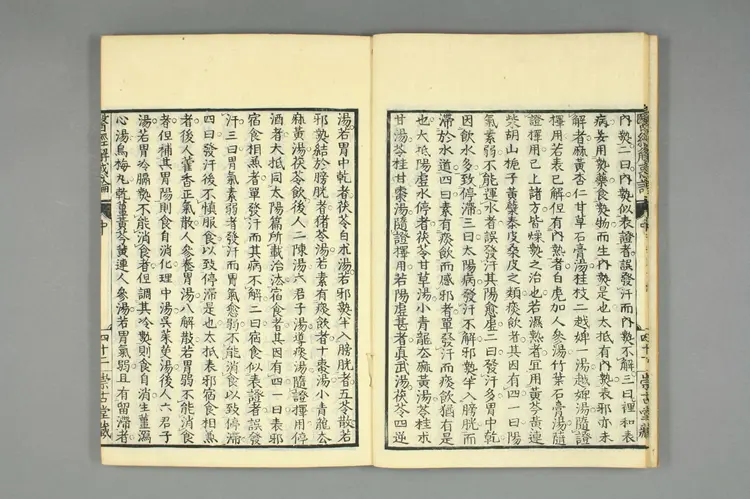 內熱二曰內熱似表證者誤發汗而內熱不解三曰裡和表
病妄用熱藥食熱物而生內熱是也大抵有內熱表邪亦未
解者麻黃杏仁甘草石膏湯桂枝二越婢一湯越婢湯隨證
擇用若表已解但有內熱者白虎加人參湯竹葉石膏湯隨
證擇用已上諸方皆燥熱之治也若濕熱者宜用黃芩黃連
柴胡山梔子黃蘗秦皮桑皮之類痰飲者其因有四一曰陽
氣素弱不能運水者誤發汗其陽愈虛二曰發汗多胃中乾
因飲水多致停滯三曰太陽病發汗不解邪熱半入膀胱而
滯於水道四曰素有痰飲而感邪者單發汗而痰飲猶有是
也大抵陽虛水停者茯苓甘草湯小青龍去麻黃湯苓桂朮
甘湯苓桂甘棗湯隨證擇用若陽虛甚者真武湯茯苓四逆
醫經解惑論
中
四十二
崇古堂藏
湯若胃中乾者茯苓白朮湯若邪熱半入膀胱者五苓散若
邪熱結於膀胱者猪苓湯若素有痰飲者十棗湯小青龍去
麻黃湯茯苓飲後人二陳湯六君子湯導痰湯隨證擇用停
酒者大抵同太陽篇所載治法宿食者其因有四一曰表邪
宿食相兼者單發汗而其病不解二曰宿食似表證者誤發
汗三曰胃氣素弱者發汗而胃氣愈虧不能消食以致停滯
四曰發汗後不慎服食以致停滯是也大抵表邪宿食相兼
者後人藿香正氣散人參養胃湯八解散若胃弱不能消食
者但補其胃陽則食自消化理中湯吳茱萸湯後人六君子
湯若胃冷膈熱不能消食者但調其冷熱則食自消生薑瀉
心湯烏梅丸乾薑黃芩黃連人參湯若胃氣弱且有留滯者